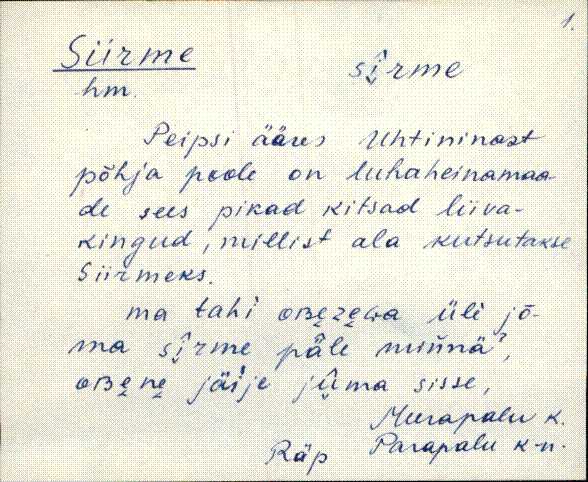 1.
Siirme sî̬rme
hm.
Peipsi ääres Uhtininast
põhja poole on luhaheinamaa-
de sees pikad kitsad liiva-
kingud, millist ala kutsutakse
Siirmeks.
ma tahi oʙe̬ze̬ɢa üle jō-
ma sî̬rme pǟle minnä’,
oʙe̬ne̬ jäije jû̬ma sisse,
Murapalu k.
Räp Parapalu k-n.